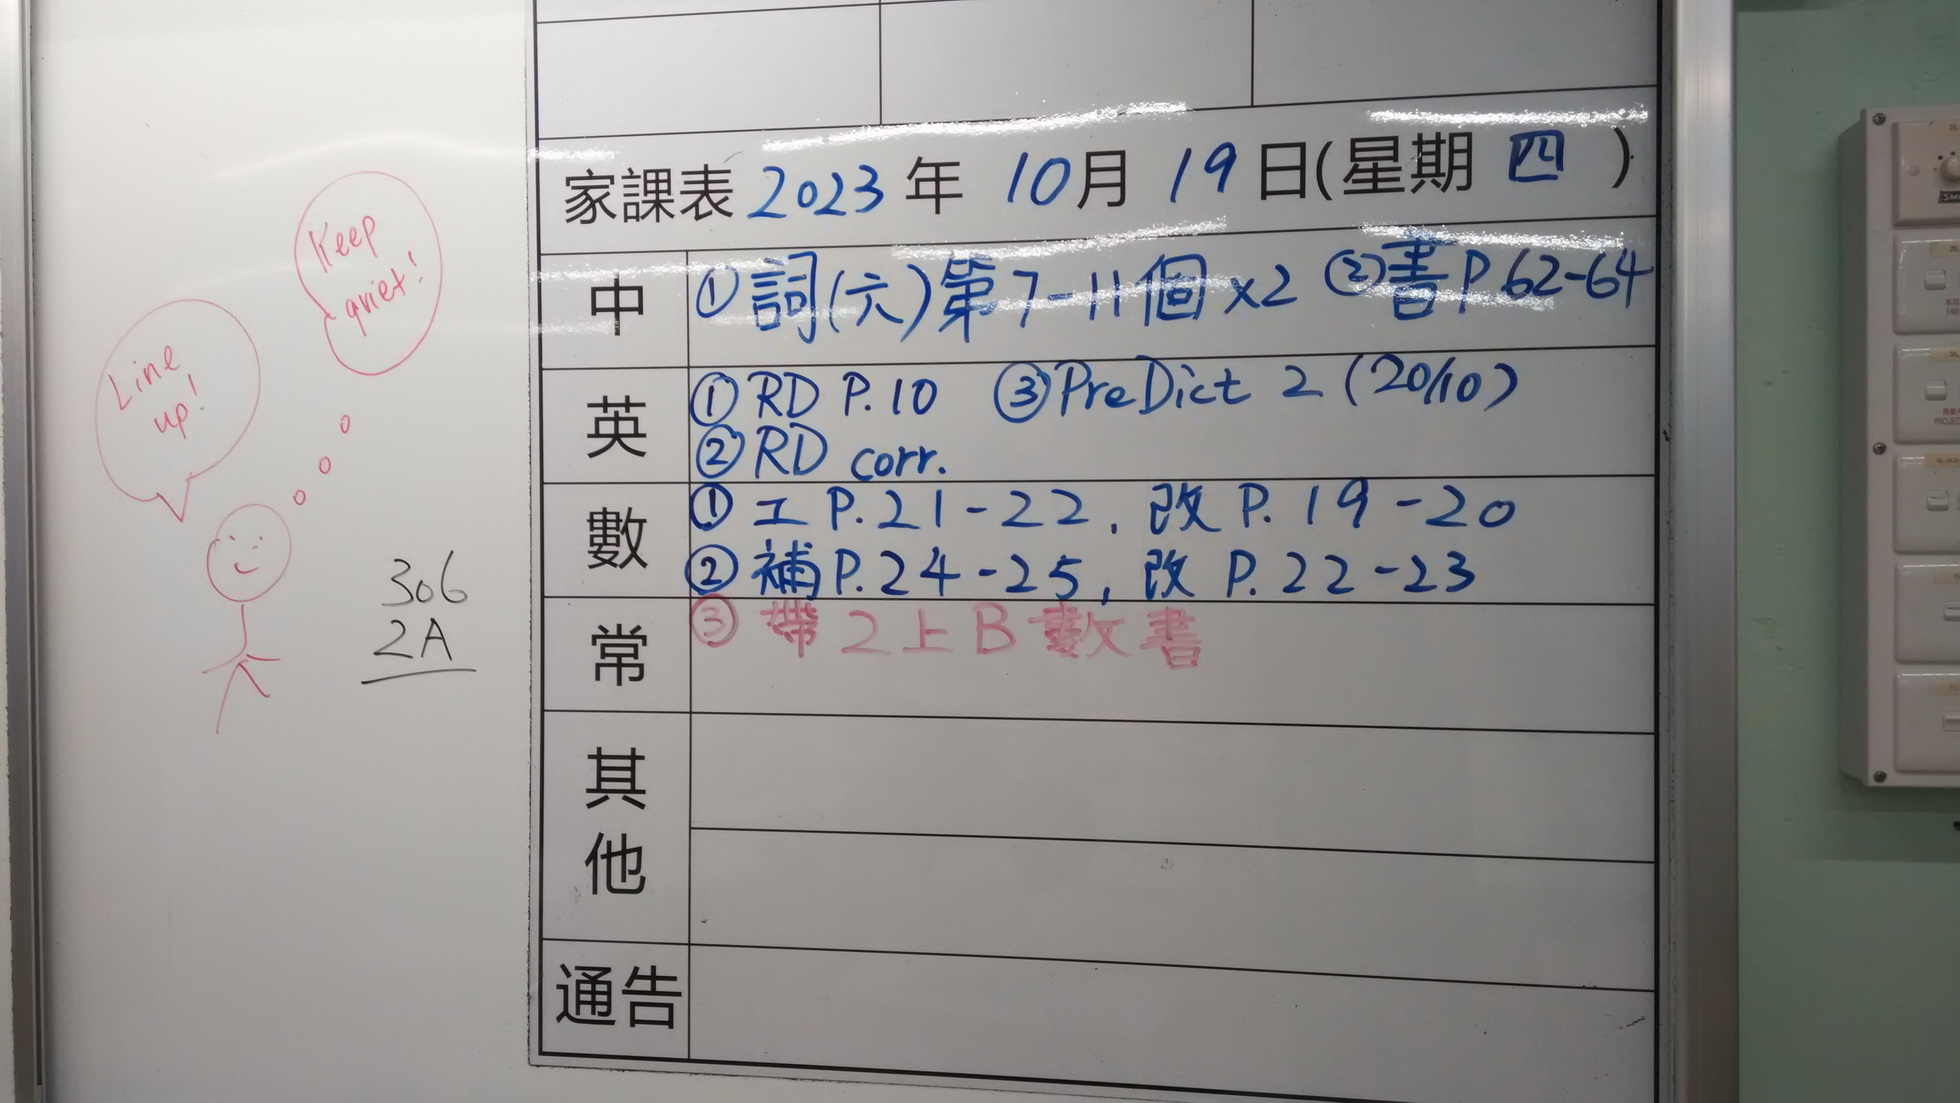 家課表 2023 年 10月 19日(星期 四 )
中 ①詞(六)第7-11個x2 ②書P.62-64
英 ①RD P.10 ③PreDict 2 (20/10)
②RD corr.
數 ①工P.21-22, 改P.19-20
②補P.24-25, 改P.22-23
常 ③帶2上B數書
其他
通告
Keep
quiet!
Line
up!
306
2A